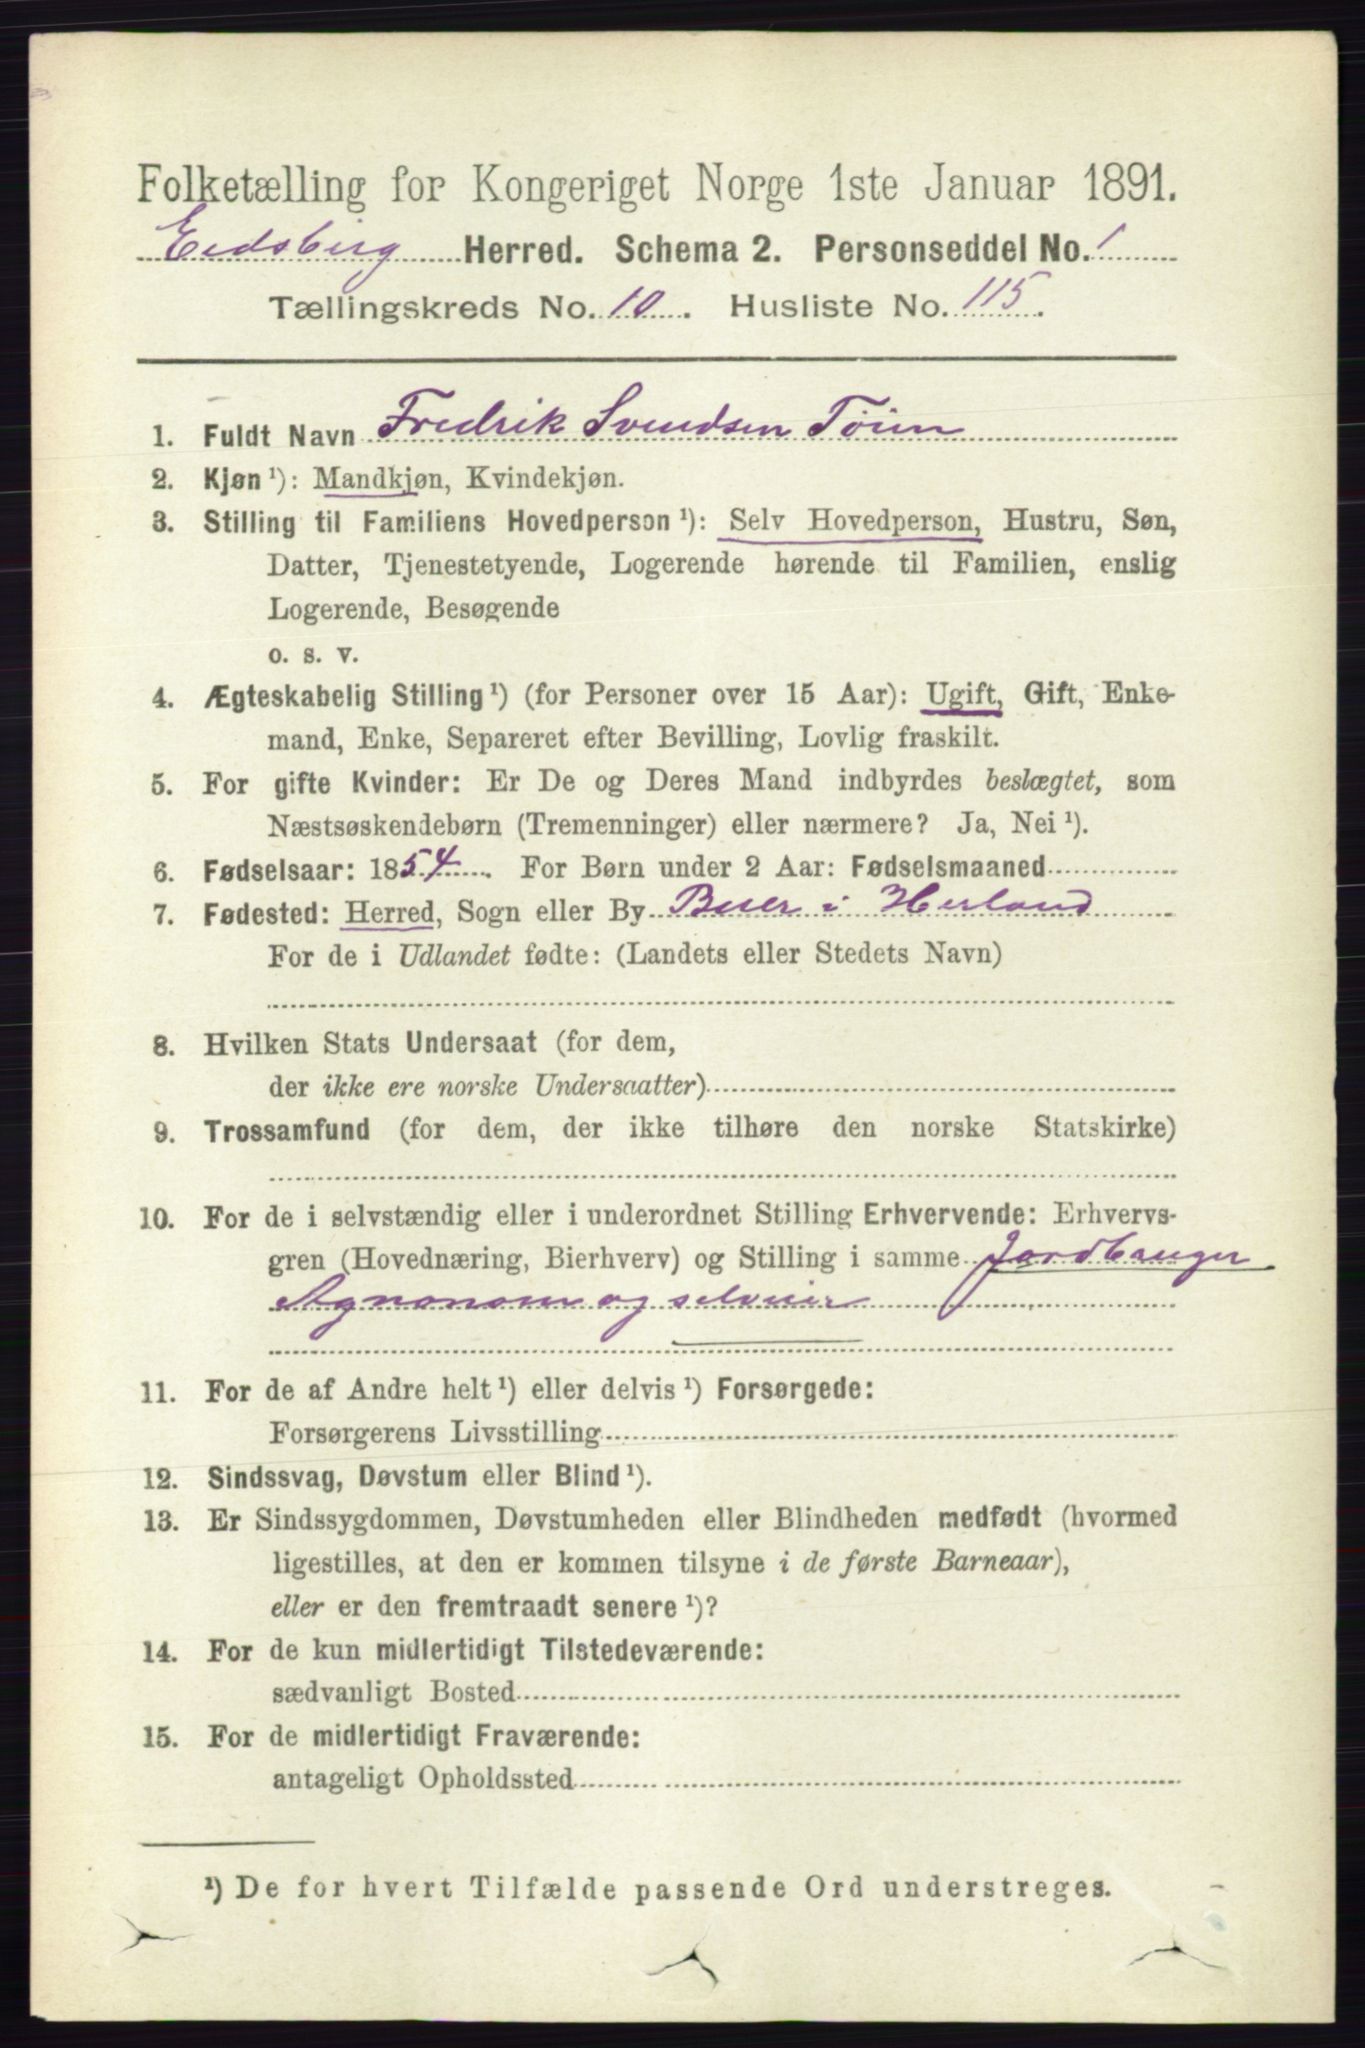 Folketælling for Kongeriget Norge 1ste Januar 1891.
Eidsberg Herred. Schema 2. Personseddel No. 1
Tællingskreds No. 10. Husliste No. 115.
1. Fuldt Navn Fredrik Svendsen Töien
2. Kjøn ¹): Mandkjøn, Kvindekjøn.
3. Stilling til Familiens Hovedperson ¹): Selv Hovedperson, Hustru, Søn,
Datter, Tjenestetyende, Logerende hørende til Familien, enslig
Logerende, Besøgende
o. s. v.
4. Ægteskabelig Stilling ¹) (for Personer over 15 Aar): Ugift, Gift, Enke-
mand, Enke, Separeret efter Bevilling, Lovlig fraskilt.
5. For gifte Kvinder: Er De og Deres Mand indbyrdes beslægtet, som
Næstsøskendebørn (Tremenninger) eller nærmere? Ja, Nei ¹).
6. Fødselsaar: 1854. For Børn under 2 Aar: Fødselsmaaned
7. Fødested: Herred, Sogn eller By Buer i Herland
For de i Udlandet fødte: (Landets eller Stedets Navn)
8. Hvilken Stats Undersaat (for dem,
der ikke ere norske Undersaatter)
9. Trossamfund (for dem, der ikke tilhøre den norske Statskirke)
10. For de i selvstændig eller i underordnet Stilling Erhvervende: Erhvervs-
gren (Hovednæring, Bierhverv) og Stilling i samme Jordbruger
Agronom og selveier
11. For de af Andre helt ¹) eller delvis ¹) Forsørgede:
Forsørgerens Livsstilling
12. Sindssvag, Døvstum eller Blind ¹).
13. Er Sindssygdommen, Døvstumheden eller Blindheden medfødt (hvormed
ligestilles, at den er kommen tilsyne i de første Barneaar),
eller er den fremtraadt senere ¹)?
14. For de kun midlertidigt Tilstedeværende:
sædvanligt Bosted
15. For de midlertidigt Fraværende:
antageligt Opholdssted
¹) De for hvert Tilfælde passende Ord understreges.